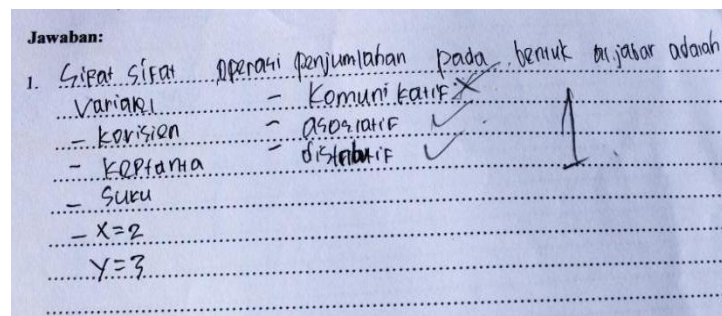 Jawaban:
1. Sifat Sifat operasi penjumlahan pada bentuk al.jabar adalah
Variabel - Komunikatif
- Kovisien - asosiatif
- Konstanta - distributif
- Suku
- X=2
Y=3
1